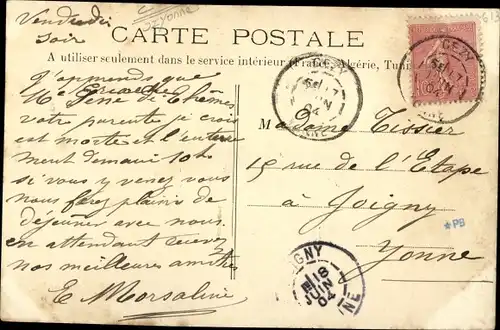 Yonne
Vendredi
soir
CARTE POSTALE
A utiliser seulement dans le service intérieur (France, Algérie, Tunis
J'apprends que
Mᵉ
votre parente je crois
est morte et l'enterre
ment demain 10h
si vous y venez vous
nous ferez plaisir de
déjeuner avec nous.
en attendant recevez
nos meilleures amitiés
E Morsaline
CEZY
17
JUIN
04
CEZY
17
JUIN
04
Madame Tissier
15 rue de l'Etape
à Joigny
Yonne
*PB
IGNY
18
JUIN
04
NE